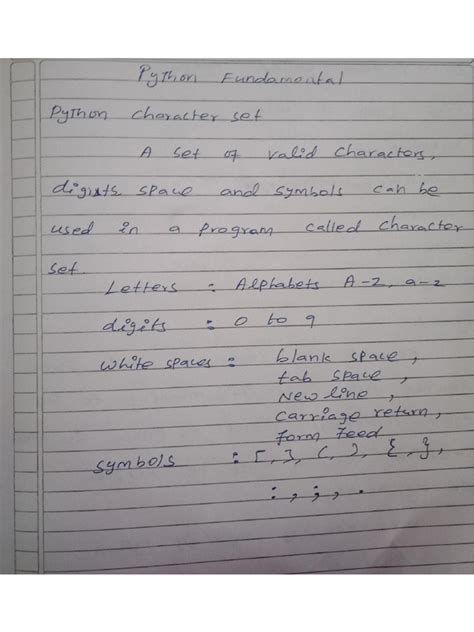 Python Fundamental
Python character set
A set of valid characters,
digists space and symbols can be
used in a program called character
set.
Letters : Alphabets A-Z, a-z
digits : 0 to 9
white spaces : blank space,
tab space,
New line,
carriage return,
Form Feed
symbols : [, ], (, ), {, },
: , ; , .